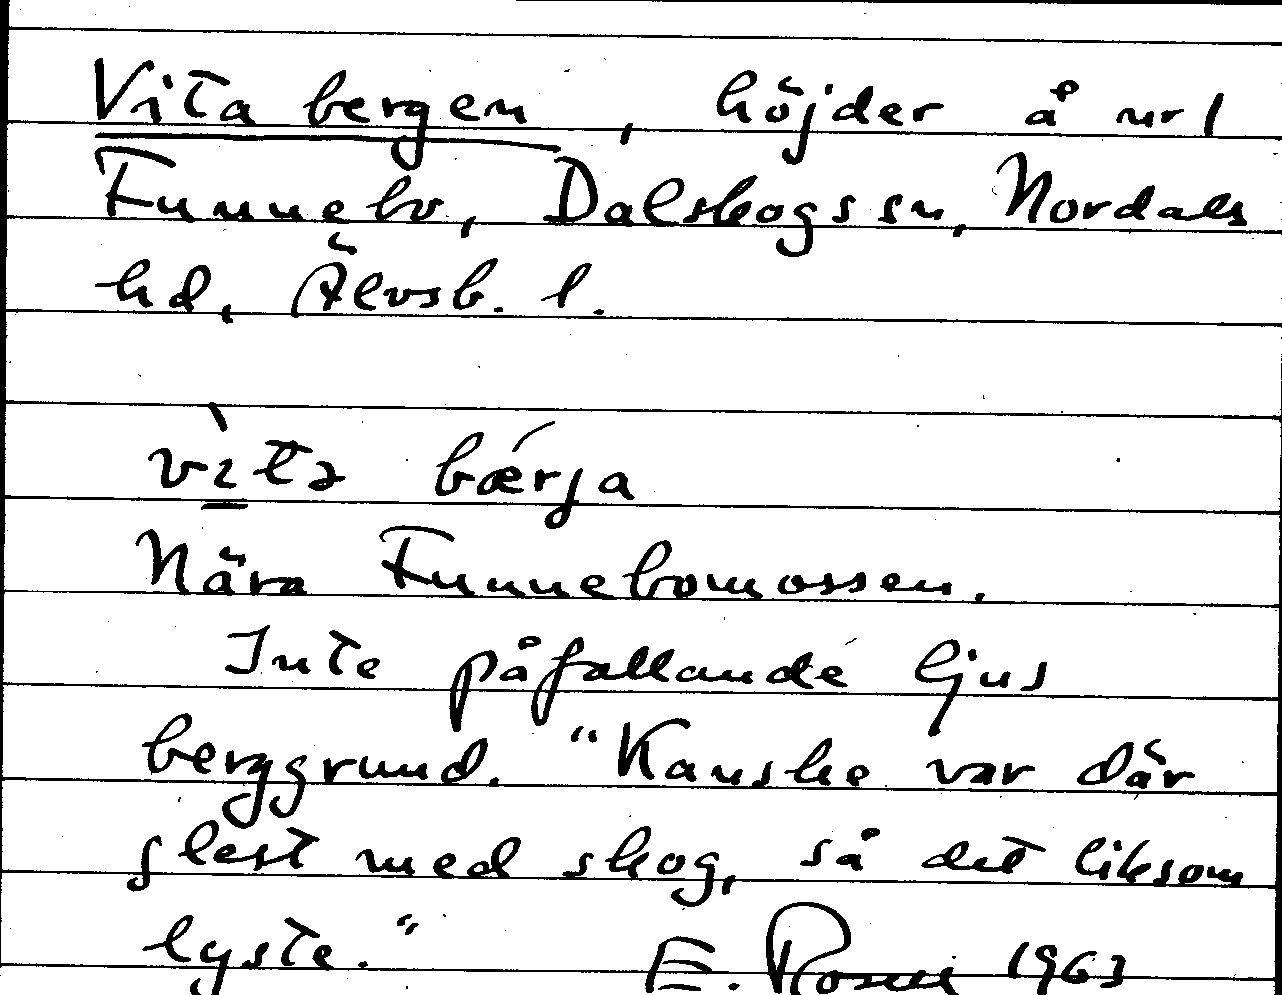 Vita bergen, höjder å nr 1
Funnebo, Dalskogs sn, Nordals
hd, Älvsb. l.
vìtə bǽrja
Nära Funnebomossen.
Inte påfallande ljus
berggrund. "Kanske var där
glest med skog, så det liksom
lyste." E. Rosell 1963